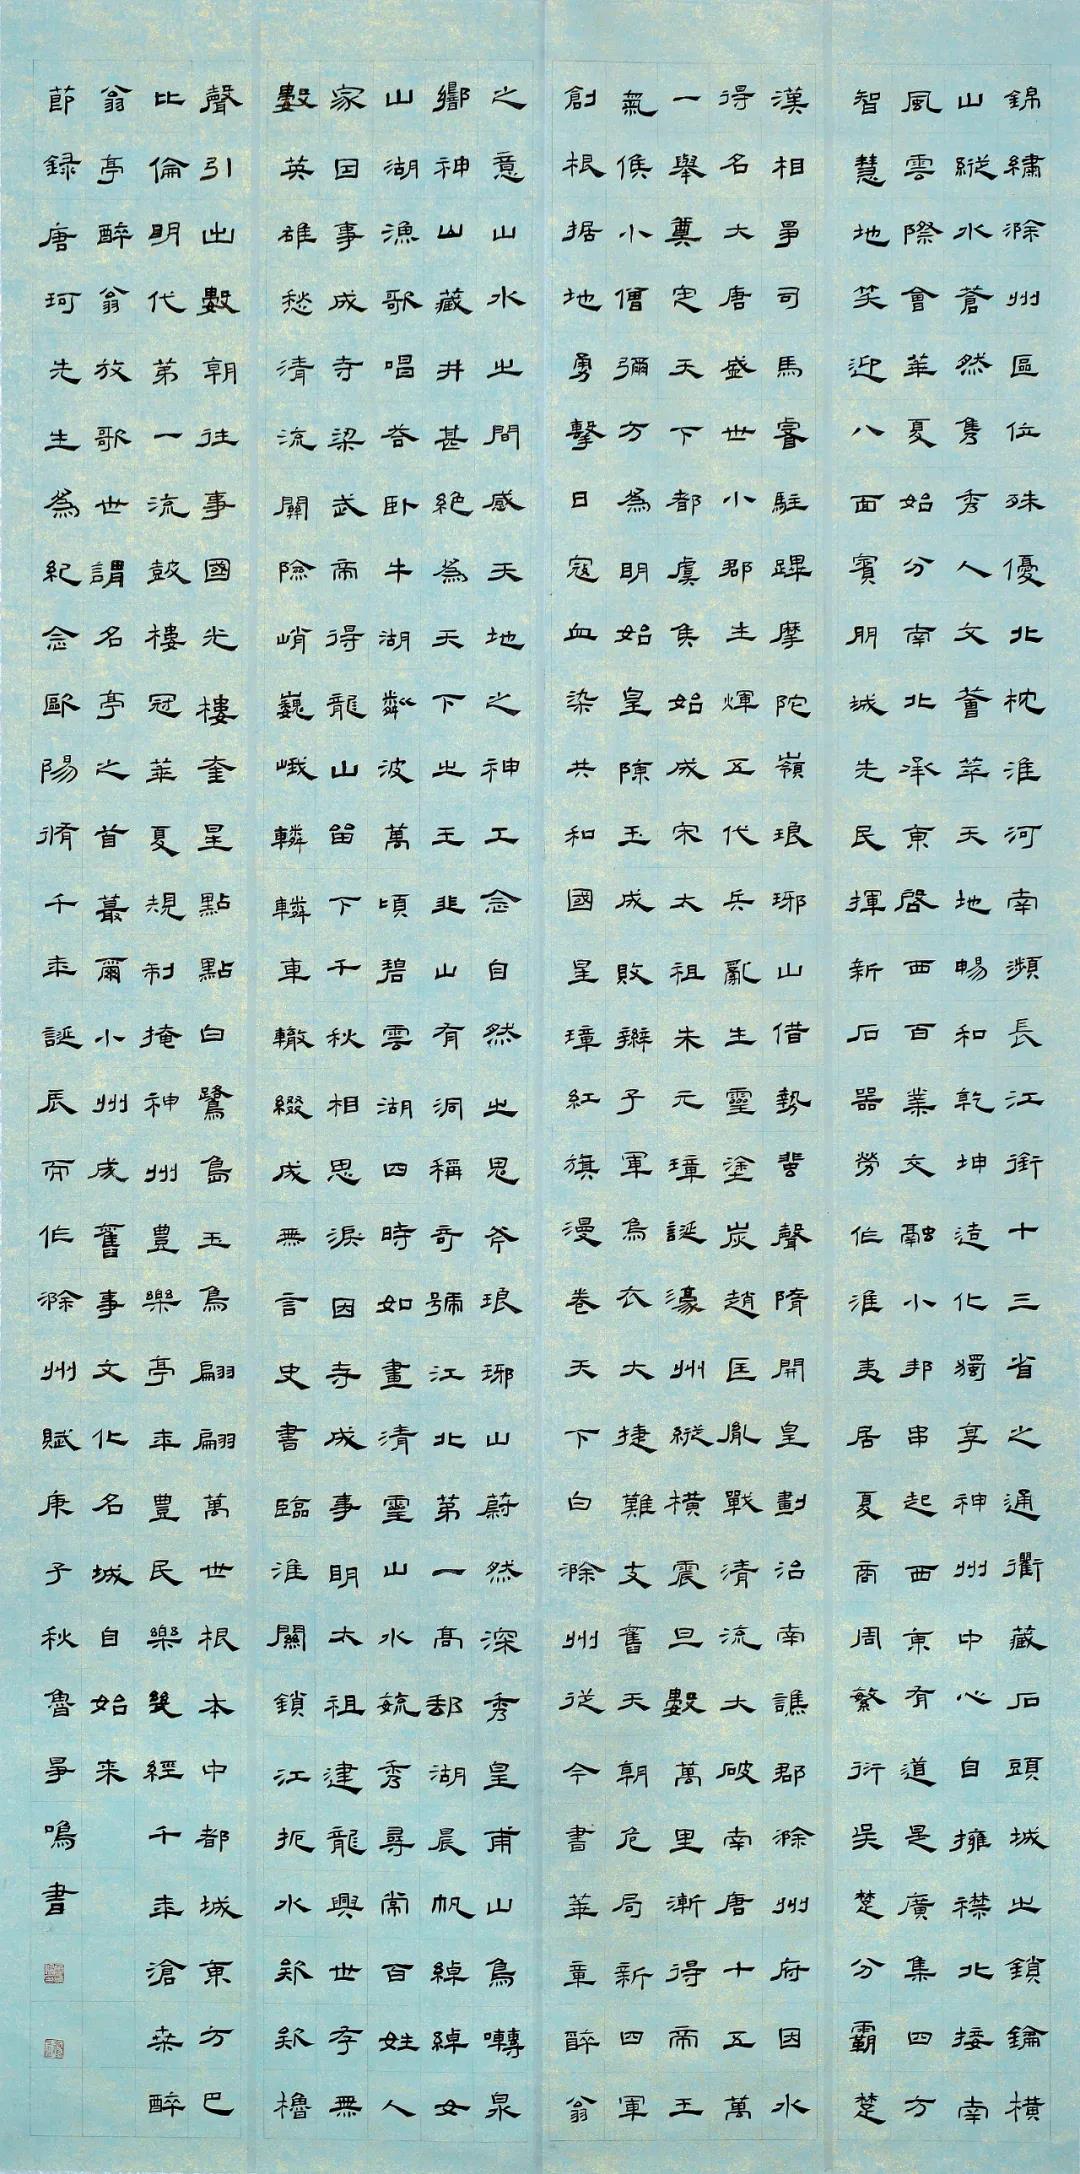 錦繡滁州區位殊優北枕淮河南瀕長江銜十三省之通衢藏石頭城之鎖鑰橫
山縱水蒼然雋秀人文薈萃天地暢和乾坤造化獨享神州中心自擁襟北接南
風雲際會華夏始分南北承東啓西百業交融小邦串起西東有道是廣集四方
智慧地笑迎八面賓朋城先民揮新石器勞作淮夷居夏商周繁衍吳楚分霸楚
漢相爭司馬睿駐蹕摩陀嶺琅琊山借勢蜚聲隋開皇劃治南譙郡滁州府因水
得名大唐盛世小郡生輝五代兵亂生靈塗炭趙匡胤戰清流大破南唐十五萬
一舉奠定天下都虞侯始成宋太祖朱元璋誕濠州縱橫震旦數萬里漸得帝王
氣候小僧彌方為明始皇陳玉成敗辮子軍烏衣大捷難支舊天朝危局新四軍
創根据地勇擊日寇血染共和國呈璋紅旗漫卷天下白滁州從今書華章醉翁
之意山水之間感天地之神工念自然之鬼斧琅琊山蔚然深秀皇甫山鳥囀泉
響神山藏井甚絕為天下之王韭山有洞稱奇號江北第一高郵湖晨帆綽綽女
山湖漁歌唱答臥牛湖粼波萬頃碧雲湖四時如畫清靈山水毓秀尋常百姓人
家因事成寺梁武帝得龍山留下千秋相思淚因寺成事明太祖建龍興世存無
數英雄愁清流關險峭巍峨轔轔車轍綴成無言史書臨淮關鎖江扼水欸欸櫓
聲引出數朝往事國光樓奎星點點白鷺島玉鳥翩翩萬世根本中都城東方巴
比倫明代第一流鼓樓冠華夏規制掩神州豐樂亭年豐民樂幾經千年滄桑醉
翁亭醉翁放歌世謂名亭之首蕞爾小州成舊事文化名城自始來
節録唐珂先生為紀念歐陽脩千年誕辰而作滁州賦庚子秋魯爭鳴書